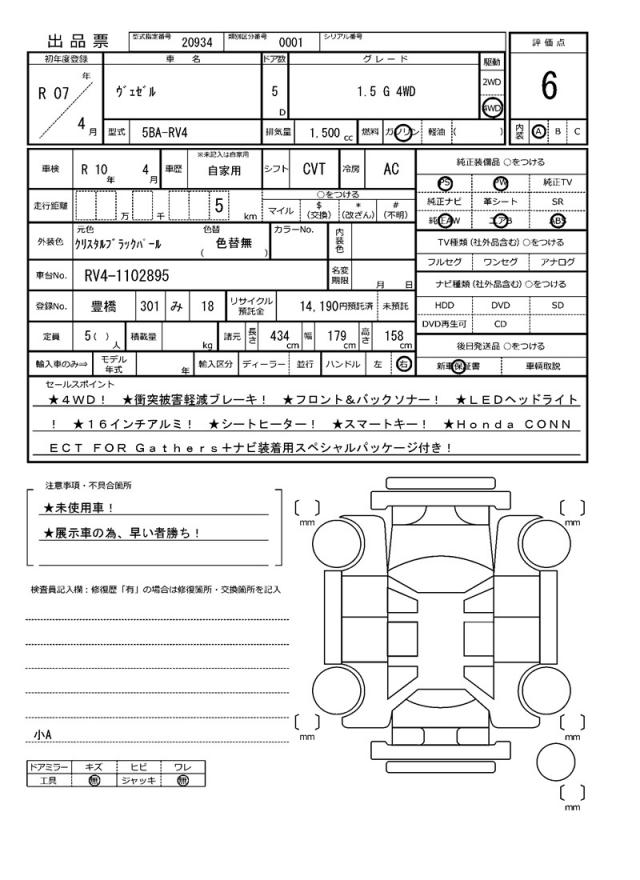 出品票 型式指定番号 20934 類別区分番号 0001 シリアル番号
評価点
6
内装 A B C
初年度登録 車名 ドア数 グレード 駆動
R 07 年 4 月 ヴェゼル 5 D 1.5 G 4WD 2WD 4WD
型式 5BA-RV4 排気量 1.500 cc 燃料 ガソリン 軽油 ( )
車検 R 10 年 4 月 車歴 ※未記入は自家用 自家用 シフト CVT 冷房 AC
走行距離 万 千 5 km ○をつける
マイル $(交換) *(改ざん) #(不明)
外装色 元色 クリスタルブラックパール 色替 ( 色替無 ) カラーNo. 内装色
車台No. RV4-1102895 名変期限 月 日
登録No. 豊橋 301 み 18 リサイクル預託金 14,190円預託済 未預託
定員 5( ) 人 積載量 kg 諸元 長さ 434 cm 幅 179 cm 高さ 158 cm
輸入車のみ⇒ モデル年式 年 輸入区分 ディーラー 並行 ハンドル 左 右
純正装備品 ○をつける
PS PW 純正TV
純正ナビ 革シート SR
純正AW エアB ABS
TV種類(社外品含む)○をつける
フルセグ ワンセグ アナログ
ナビ種類(社外品含む)○をつける
HDD DVD SD
DVD再生可 CD
後日発送品 ○をつける
新車保証書 車輌取説
セールスポイント
★4WD! ★衝突被害軽減ブレーキ! ★フロント&バックソナー! ★LEDヘッドライト
! ★16インチアルミ! ★シートヒーター! ★スマートキー! ★Honda CONN
ECT FOR Gathers+ナビ装着用スペシャルパッケージ付き!
注意事項・不具合箇所
★未使用車!
★展示車の為、早い者勝ち!
検査員記入欄:修復歴「有」の場合は修復箇所・交換箇所を記入
小A
ドアミラー キズ ヒビ ワレ
工具 無 ジャッキ 無
[ ] mm
[ ] mm
[ ] mm
[ ] mm
[ ] mm